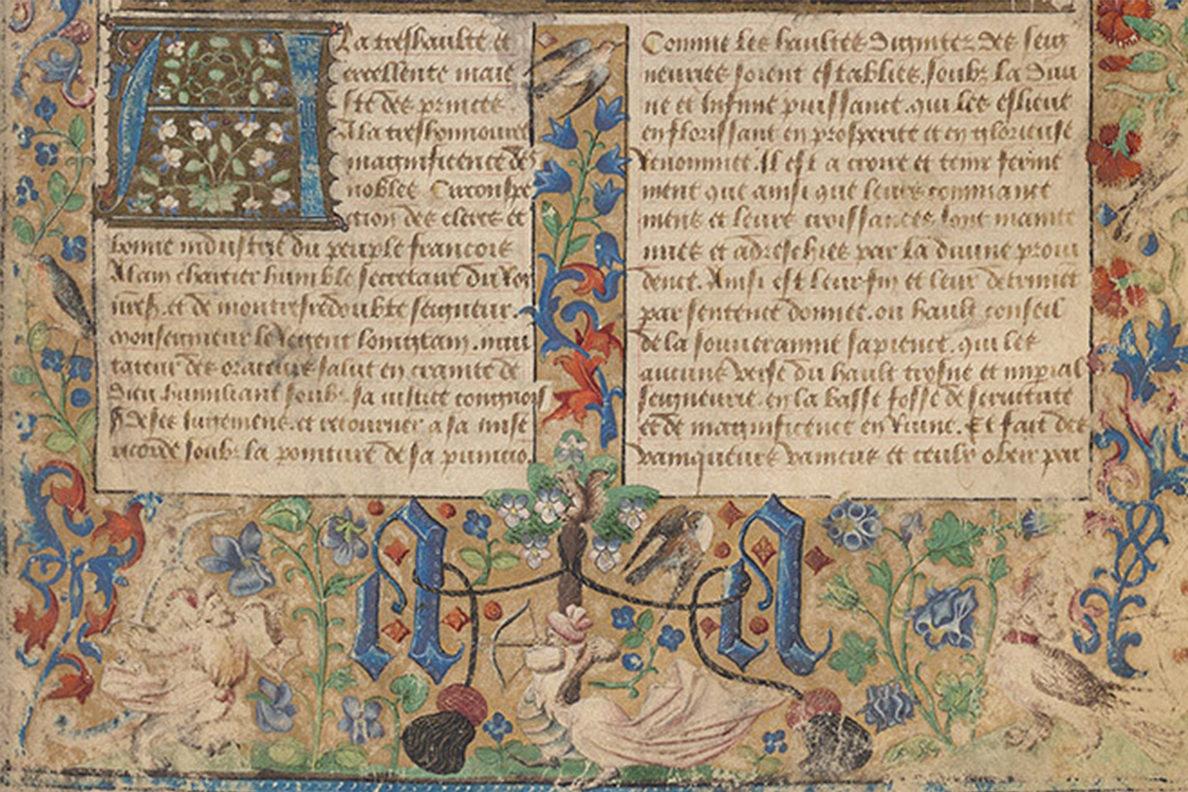 A La treshaulte et
excellente maie
ste des princes
A la treshonnouree
magnificence des
nobles Circonspe
ction des clercs et
bonne industrie du peuple francois
Alain chartier humble secretaire du Roy
et de mon tresredoubte seigneur.
monseigneur le regent loingtain. imi
tateur des orateurs salut en crainte de
dieu humiliant soubz sa iustice
de ses iugemens. et retourner a sa mise
ricorde soubz la pointure de sa punicio
Comme les haultes dignitez des seig
neuries soient establies soubz la diui
ne et infinie puissance qui les eslieue
en florissant en prosperite et en glorieuse
renommee. Il est a croire et tenir ferme
ment que ainsi que leurs commance
mens et leurs croissances sont mainte
nues et adreschies par la diuine proui
dence. Ainsi est leur fin et leur detriment
par sentence donnee. ou hault conseil
de la souueraine sapience. qui les
aucuns verse du hault trosne et imperial
seigneurie. en la basse fosse de seruitute
et de magnificence en Ruine. Et fait des
vainqueurs vaincus et ceulx obeir par
A A